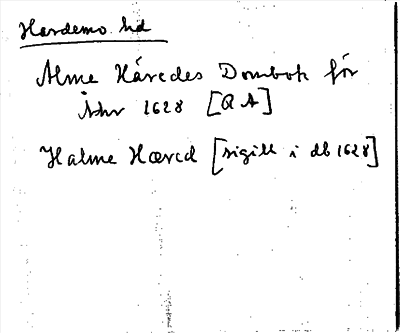 Hardemo hd
Alme Häredes Dombok för
Åhr 1628 [RA]
Halme Hæred [sigill i db 1628]